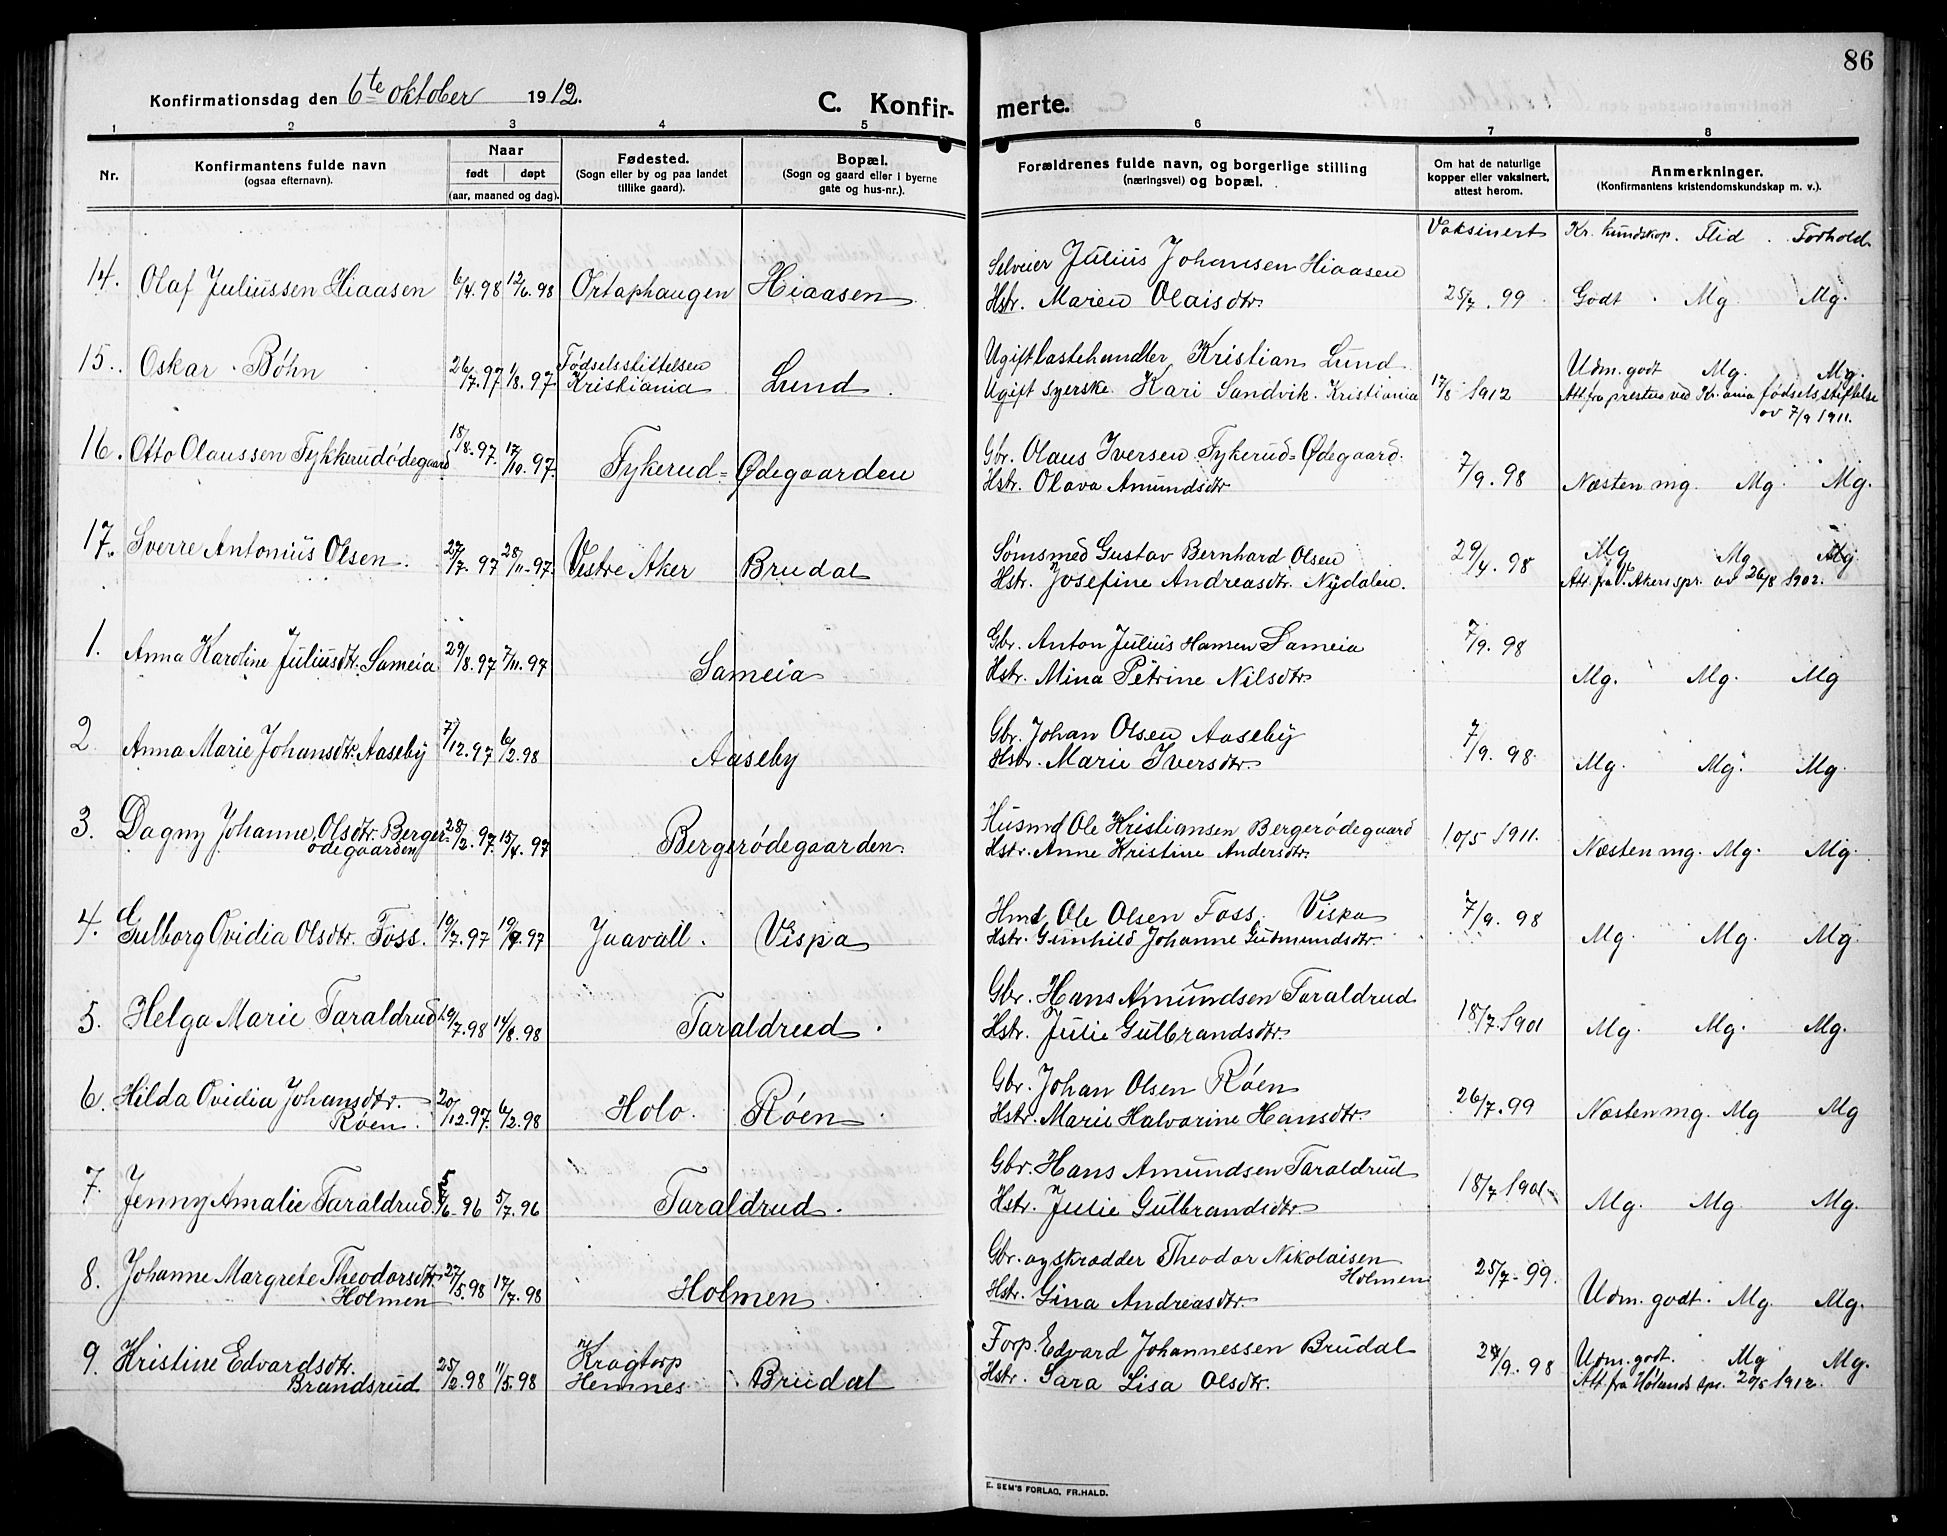 86
Konfirmationsdag den 6te oktober 1912.
C. Konfirmerte.
1 2 3 4 5 6 7 8
Nr.
Konfirmantens fulde navn
(ogsaa efternavn).
Naar
født døpt
(aar, maaned og dag).
Fødested.
(Sogn eller by og paa landet
tillike gaard).
Bopæl.
(Sogn og gaard eller i byerne
gate og hus-nr.).
Forældrenes fulde navn, og borgerlige stilling
(næringsvei) og bopæl.
Om hat de naturlige
kopper eller vaksinert,
attest herom.
Anmerkninger.
(Konfirmantens kristendomskundskap m. v.).
Vaksinert Kr. kundskap. Flid. Forhold
14. Olaf Juliussen Hiaasen 6/4.98 12/6.98 Ortaphaugen Hiaasen
Selveier Julius Johansen Hiaasen
Hstr. Maren Olaisdtr. 25/7.99 Godt. Mg. Mg.
15. Oskar Bøhn 26/7.97 1/8.97 Fødselsstiftelsen
Kristiania Lund.
Ugift lastehandler Kristian Lund
Ugift syerske Kari Sandvik. Kristiania 17/8 1912
Udm. godt Mg. Mg.
Att. fra presten ved Kr.ania fødselsstiftelse
av 7/9 1911.
16. Otto Olaussen Fykkerudødegaard 18/8.97. 17/10.97. Fykerud=Ødegaarden
Gbr. Olaus Iversen Fykerud=Ødegaard.
Hstr. Olava Amundsdtr 7/9.98 Næsten mg. Mg. Mg.
17. Sverre Antonius Olsen. 27/7.97 28/11.97. Vestre Aker Brudal
Sømsmed Gustav Bernhard Olsen
Hstr. Josefine Andreasdtr. Nydalen. 29/4.98
Mg Mg Mg
Att. fra V. Akers spr. av 26/8 1902.
1. Anna Karoline Juliusdtr. Sameia 29/8.97 7/11.97 Sameia
Gbr. Anton Julius Hansen Sameia
Hstr. Mina Petrine Nilsdtr. 7/9.98 Mg. Mg. Mg
2 Anna Marie Johansdtr. Aaseby 7/12.97 6/2.98 Aaseby
Gbr. Johan Olsen Aaseby
Hstr. Marie Iversdtr. 7/9.98. Mg. Mg. Mg.
3. Dagny Johanne Olsdtr. Berger-
ødegaarden 28/2.97. 15/4.97 Bergerødegaarden.
Husmd Ole Kristiansen Bergerødegaard
Hstr. Anne Kristine Andersdtr. 10/5 1911. Næsten mg. Mg. Mg.
4. Gulborg Ovidia Olsdtr. Foss. 10/7.97 19/9.97 Juavall. Vispa
Hmd. Ole Olsen Foss. Viska
Hstr. Gunhild Johanne Gudmundsdtr. 7/9.98 Mg. Mg. Mg.
5. Helga Marie Taraldrud 19/7.98 14/8.98 Taraldrud.
Gbr. Hans Amundsen Taraldrud
Hstr. Julie Gulbrandsdtr. 18/7.1901 Mg. Mg. Mg.
6. Hilda Ovidia Johansdtr.
Røen. 20/12.97. 6/2.98 Holo. Røen.
Gbr. Johan Olsen Røen
Hstr. Marie Halvorine Hansdtr. 26/7.99 Næsten mg. Mg Mg
7. Jenny Amalie Taraldrud. 5/6.96 5/7.96 Taraldrud.
Gbr. Hans Amundsen Taraldrud
Hstr. Julie Gulbrandsdtr. 18/7 1901 Mg. Mg. Mg.
8. Johanne Margrete Theodorsdtr.
Holmen 27/5.98 17/7.98 Holmen.
Gbr. og skrædder Theodor Nikolaisen
Holmen
Hstr. Gina Andreasdtr. 25/7-99. Udm. godt. Mg. Mg.
9. Kristine Edvardsdtr.
Brandsrud 25/2.98 11/5.98 Kragtorp
Hemnes Brudal
Forp. Edvard Johannessen Brudal
Hstr. Sara Lisa Olsdtr. 27/9.98
Udm. godt. Mg Mg.
Att. fra Hølands spr. 20/5 1912.
E. SEM'S FORLAG, FR.HALD.